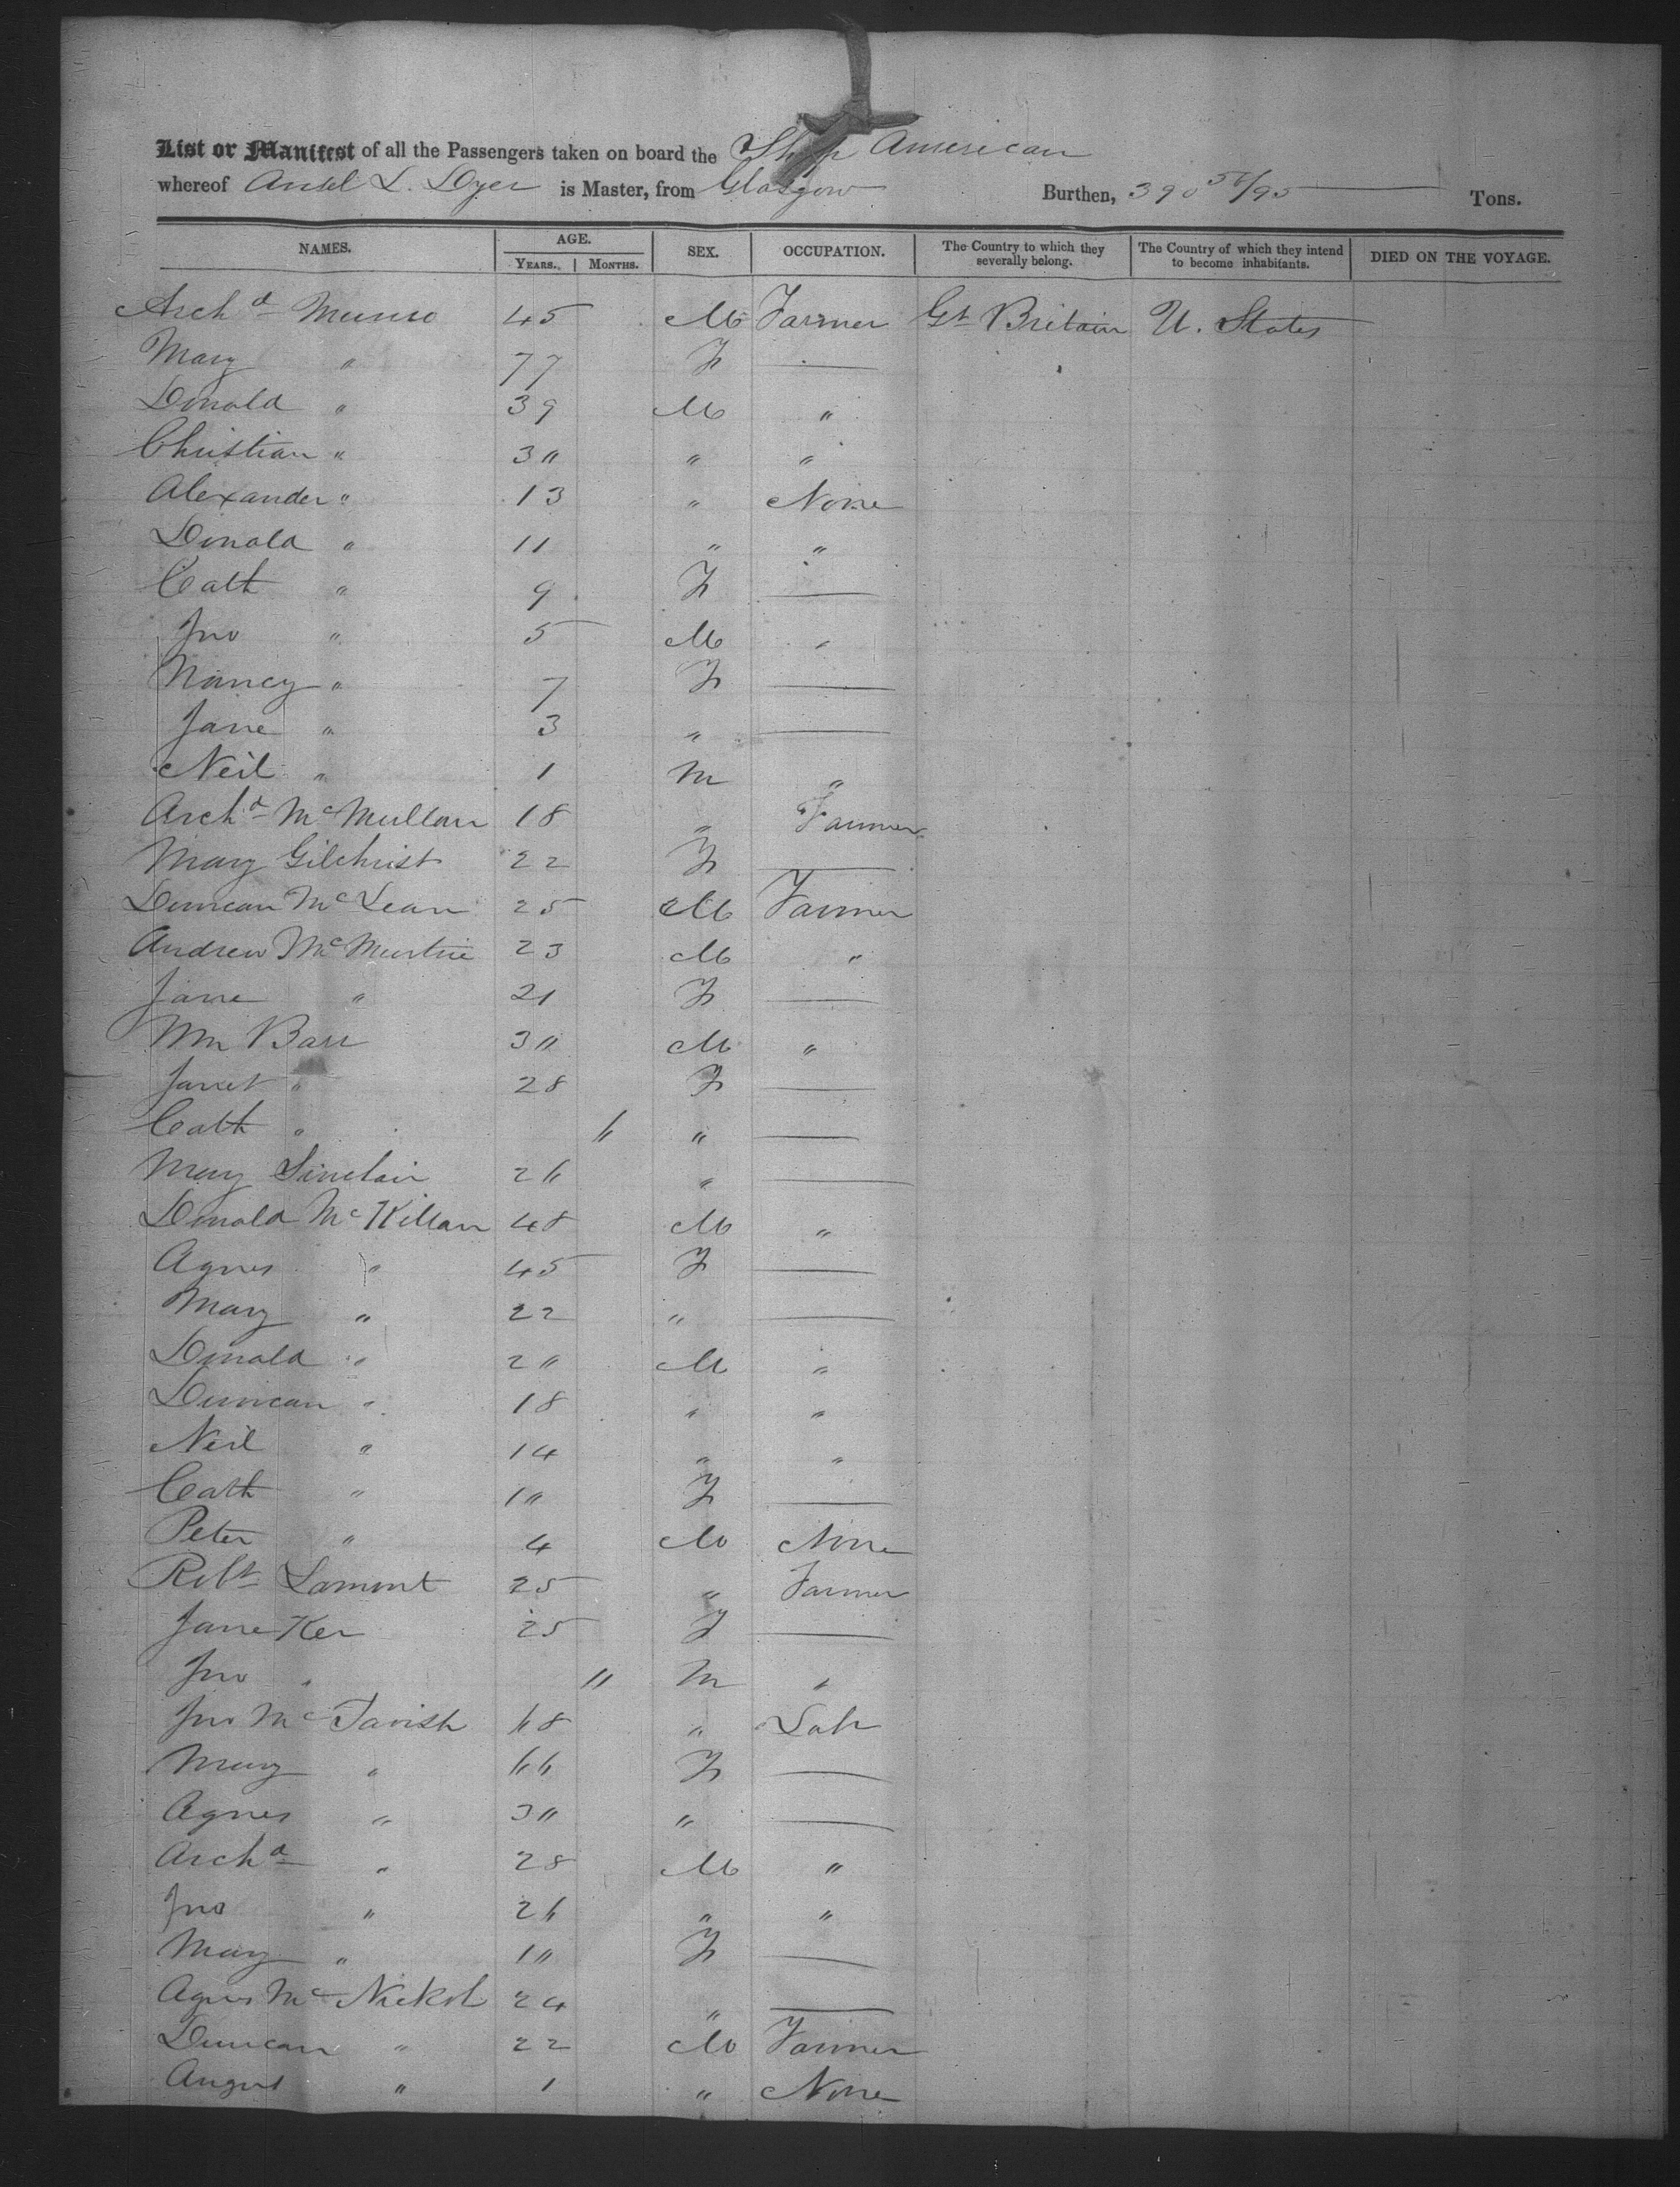 List or Manifest of all the Passengers taken on board the Ship American
whereof Ansel L. Dyer is Master, from Glasgow Burthen, 390 56/95 Tons.
NAMES. AGE. SEX. OCCUPATION. The Country to which they severally belong. The Country of which they intend to become inhabitants. DIED ON THE VOYAGE.
YEARS. MONTHS.
Archd Munro 45 M Farmer Gt Britain U. States
Mary " 77 F —
Donald " 39 M "
Christian " 30 " "
Alexander " 13 " None
Donald " 11 " "
Cath " 9 F —
Jno " 5 M "
Nancy " 7 F —
Jane " 3 " —
Neil " 1 M "
Archd McMullan 18 " Farmer
Mary Gilchrist 22 F —
Duncan McLean 25 M Farmer
Andrew McMurtrie 23 M "
Jane " 21 F —
Wm Barr 30 M "
Janet " 28 F —
Cath " 6 " —
Mary Sinclair 26 " —
Donald McKillan 48 M "
Agnes " 45 F —
Mary " 22 " —
Donald " 20 M "
Duncan " 18 " "
Neil " 14 " "
Cath " 10 F —
Peter " 4 M None
Robt Lamont 25 " Farmer
Jane Ker 25 F —
Jno " 11 M "
Jno McTavish 68 " Labr
Mary " 66 F —
Agnes " 30 " —
Archd " 28 M "
Jno " 26 " "
Mary " 10 F —
Agnes McNickol 24 " —
Duncan " 22 M Farmer
Angus " 1 " None